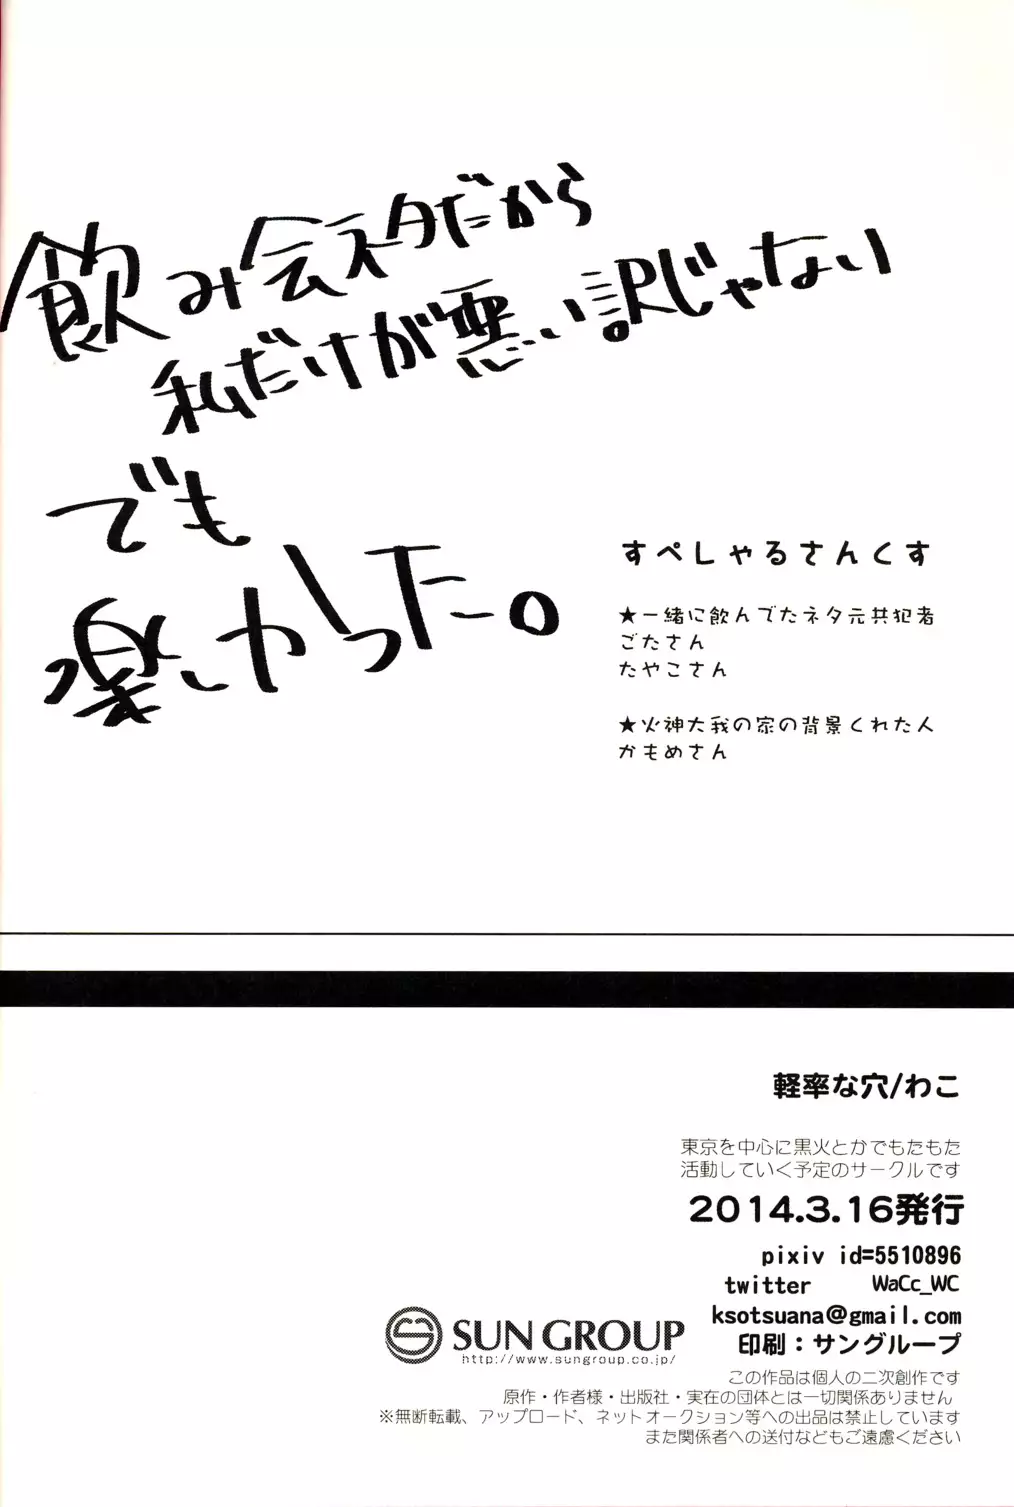 飲み会ネタだから
私だけが悪い訳じゃない
でも
楽しかった。
すぺしゃるさんくす
★一緒に飲んでたネタ元共犯者
ごたさん
たやこさん
★火神大我の家の背景くれた人
かもめさん
軽率な穴/わこ
東京を中心に黒火とかでもたもた
活動していく予定のサークルです
2014.3.16発行
pixiv id=5510896
twitter WaCc_WC
ksotsuana@gmail.com
印刷：サングループ
SUN GROUP
http://www.sungroup.co.jp/
この作品は個人の二次創作です
原作・作者様・出版社・実在の団体とは一切関係ありません
※無断転載、アップロード、ネットオークション等への出品は禁止しています
また関係者への送付などもご遠慮ください